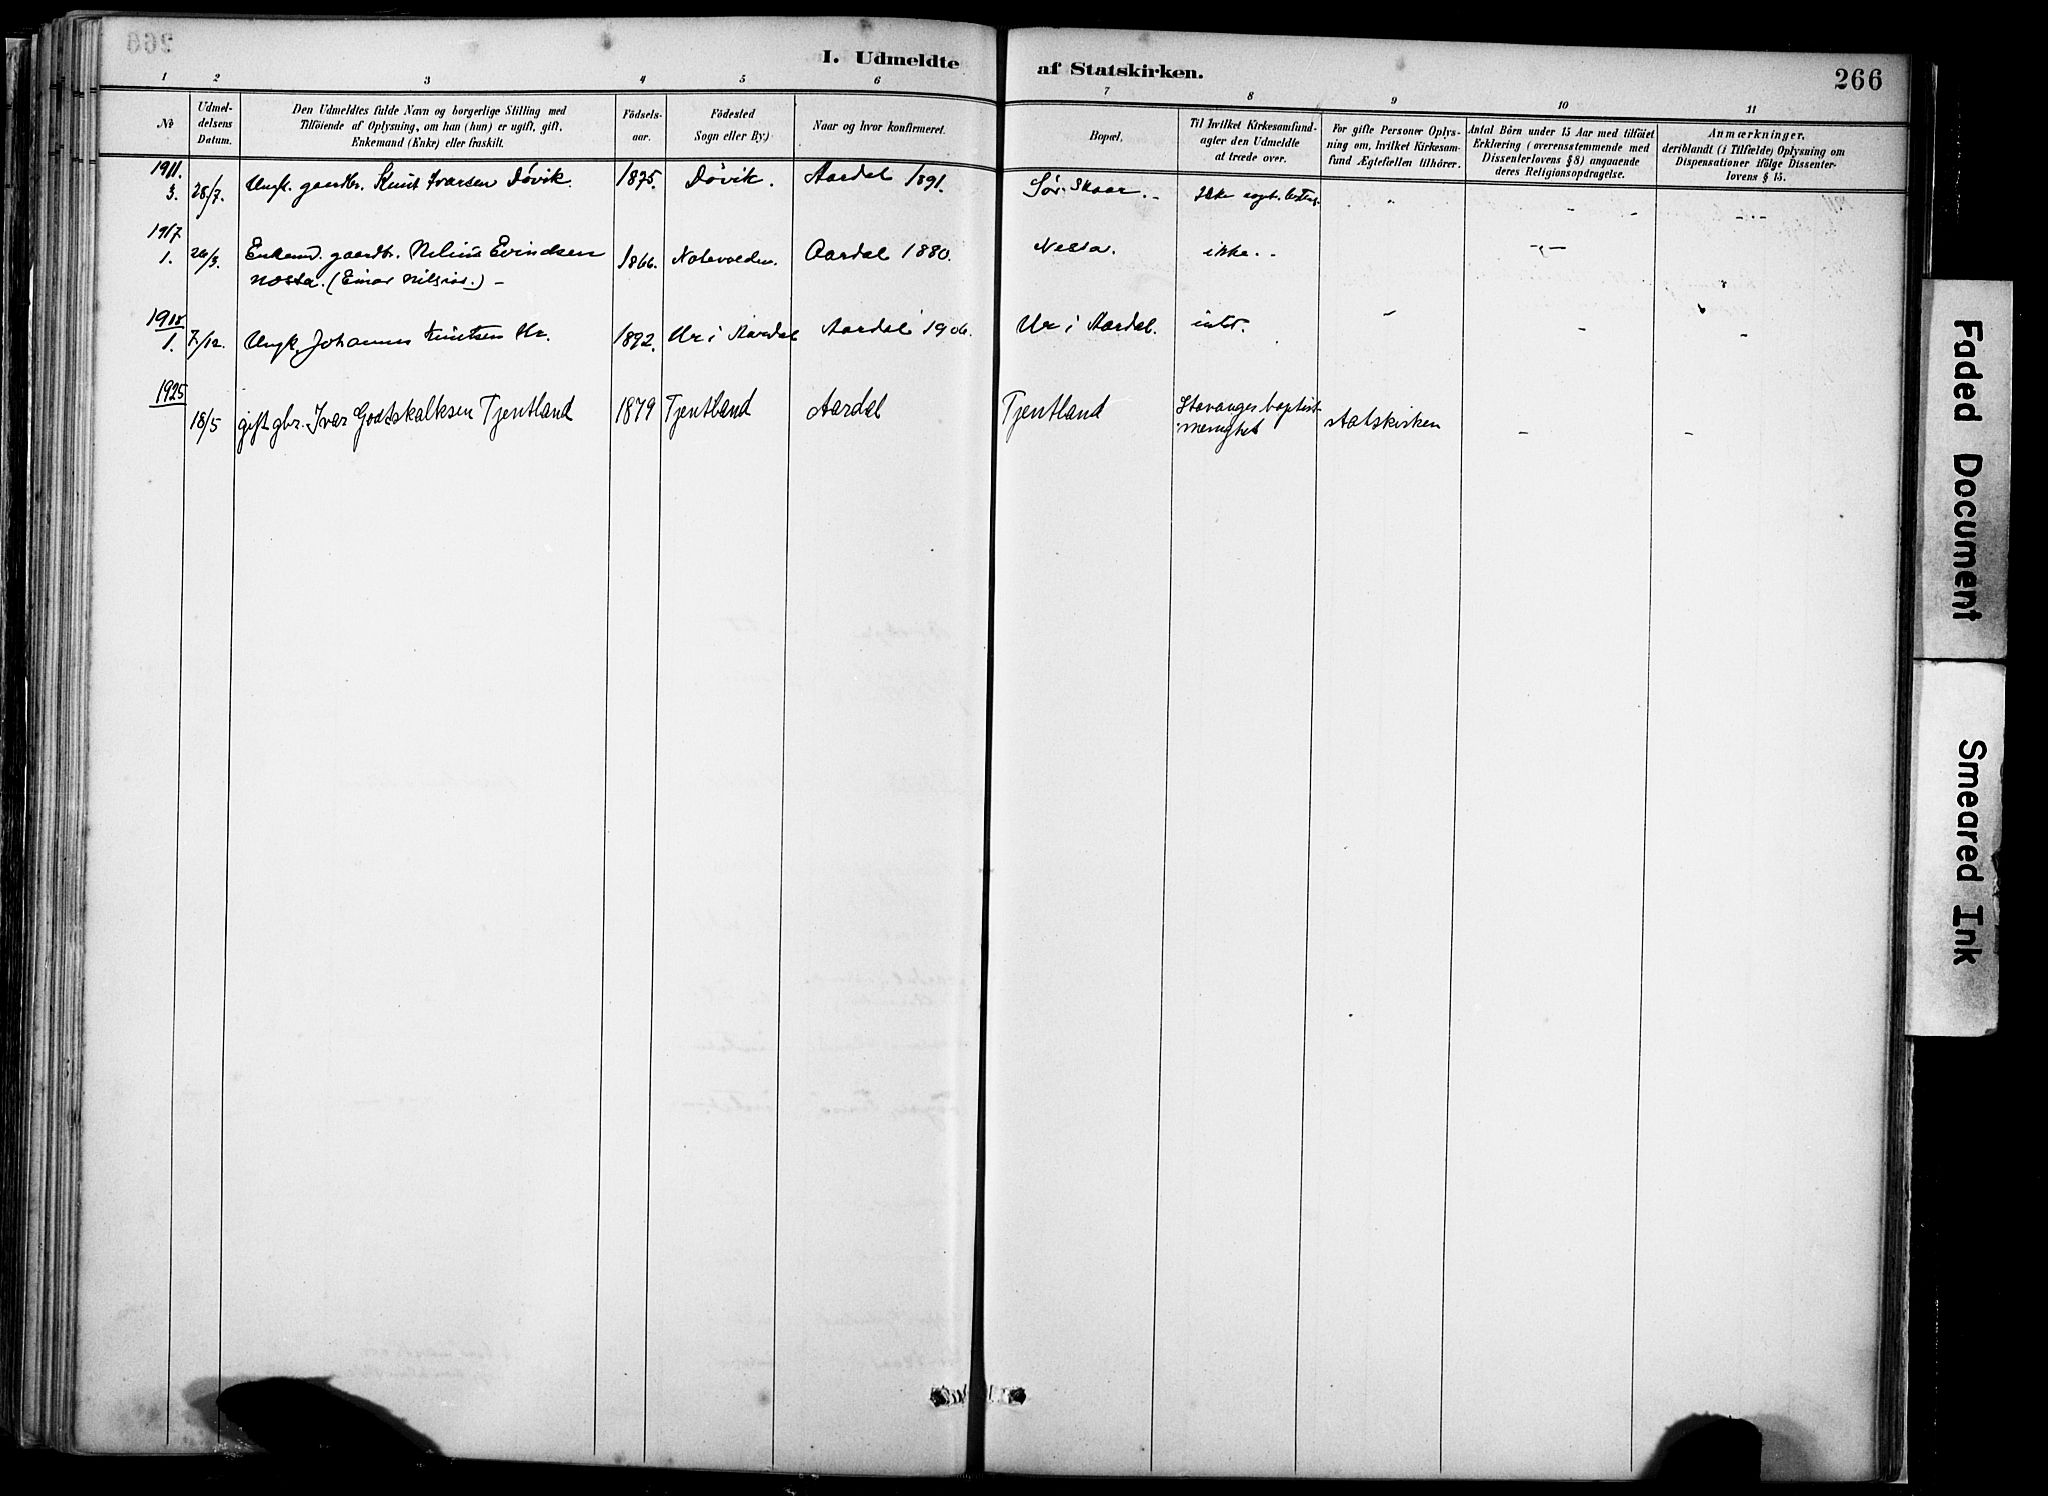 I. Udmeldte af Statskirken. 266
1 2 3 4 5 6 7 8 9 10 11
No
Udmel-
delsens
Datum.
Den Udmeldtes fulde Navn og borgerlige Stilling med
Tilföiende af Oplysning, om han (hun) er ugift, gift,
Enkemand (Enke) eller fraskilt.
Födsels-
aar.
Födested
Sogn eller By:)
Naar og hvor konfirmeret.
Bopæl.
Til hvilket Kirkesamfund
agter den Udmeldte
at træde over.
For gifte Personer Oplys-
ning om, hvilket Kirkesam-
fund Ægtefællen tilhörer.
Antal Börn under 15 Aar med tilföiet
Erklæring (overensstemmende med
Dissenterlovens § 8) angaaende
deres Religionsopdragelse.
Anmærkninger,
deriblandt (i Tilfælde) Oplysning om
Dispensationer ifölge Dissenter-
lovens § 15.
1911.
3. 28/7. Ungk. gaardbr. Knut Ivarsen Døvik. 1875. Døvik. Aardal 1891. Sør-Skaar. Ikke
1917
1. 26/3. Enkem. gaardbr. Nelius Evindsen 1866. Aardal 1880. Nessa. ikke
Nessa.
1. 7/12. Ungk. Johannes Knutsen Ur. 1892. Ur i Aardal Aardal 1906. Ur i Aardal. intet.
1925
18/5 gift gbr. Ivar Godtskalksen Tjentland 1879 Tjentland Aardal Tjentland Stavanger baptist-
menighet statskirken
Faded Document
Smeared Ink